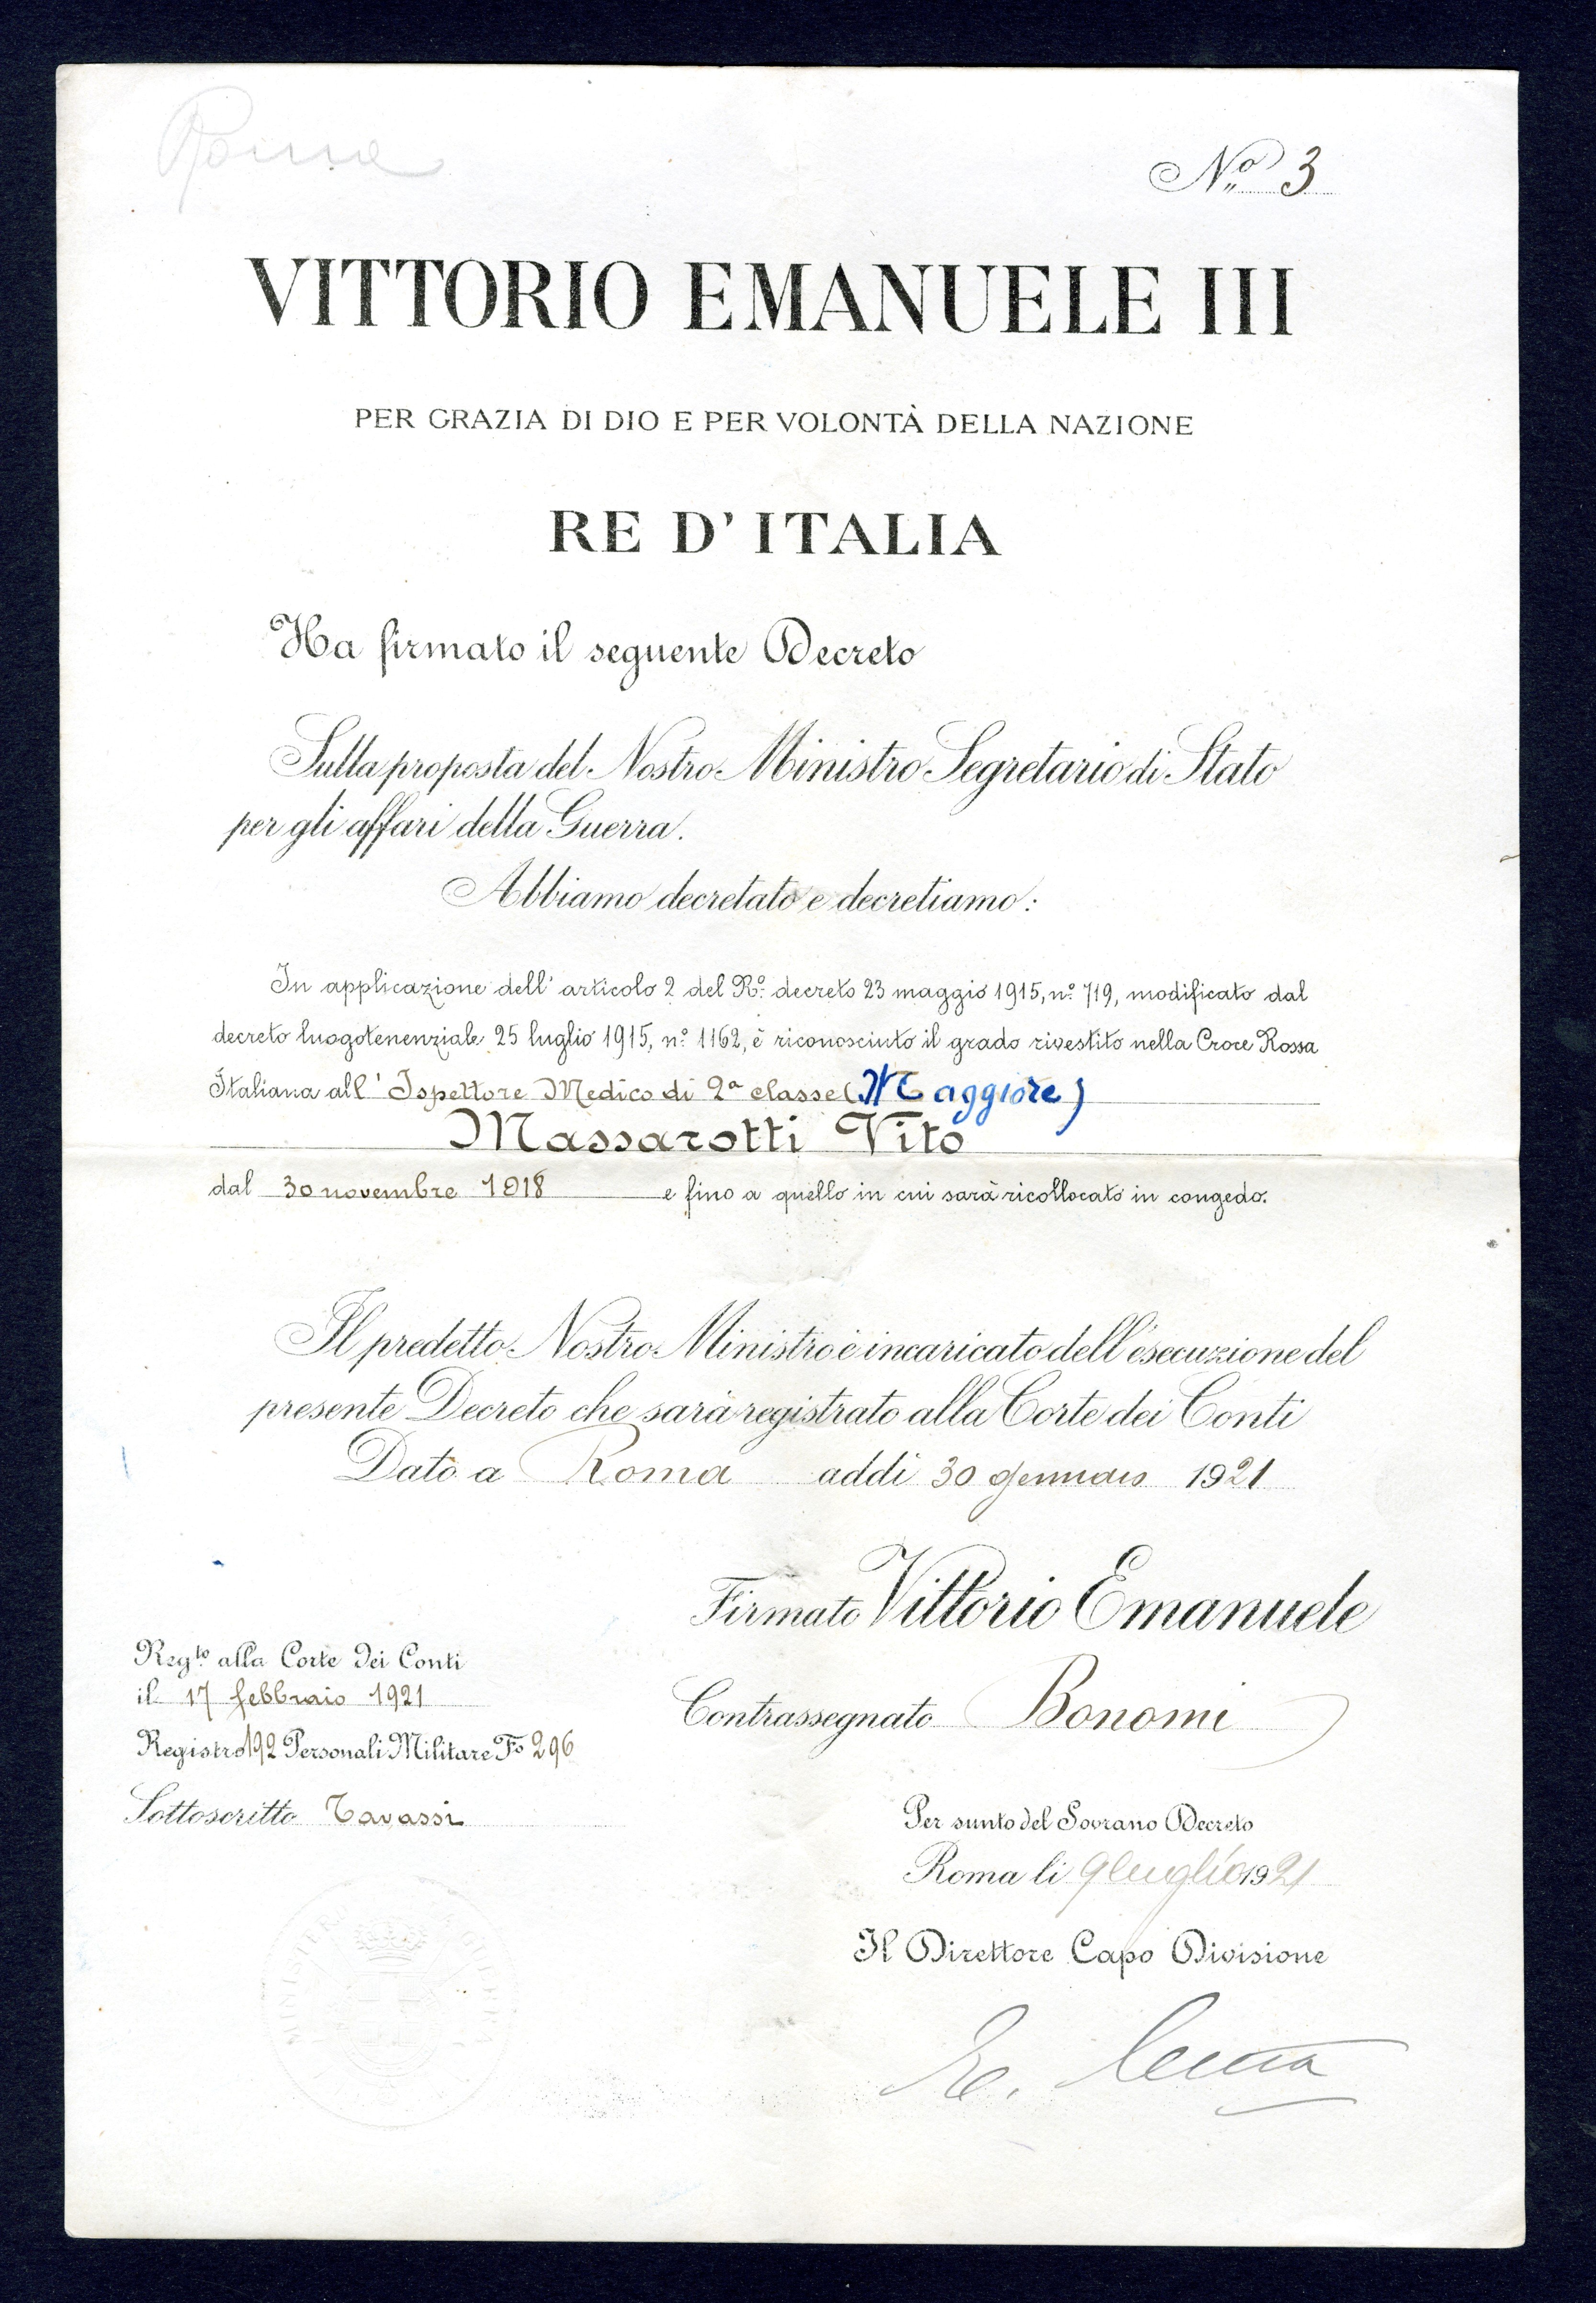 Roma
Nº 3
VITTORIO EMANUELE III
PER GRAZIA DI DIO E PER VOLONTÀ DELLA NAZIONE
RE D'ITALIA
Ha firmato il seguente Decreto
Sulla proposta del Nostro Ministro Segretario di Stato
per gli affari della Guerra.
Abbiamo decretato e decretiamo:
In applicazione dell'articolo 2 del Rº decreto 23 maggio 1915, nº 719, modificato dal
decreto luogotenenziale 25 luglio 1915, nº 1162, è riconosciuto il grado rivestito nella Croce Rossa
Italiana all'Ispettore Medico di 2ª classe (Maggiore)
Massarotti Vito
dal 30 novembre 1918 e fino a quello in cui sarà ricollocato in congedo.
Il predetto Nostro Ministro è incaricato dell'esecuzione del
presente Decreto che sarà registrato alla Corte dei Conti
Dato a Roma addì 30 gennaio 1921
Firmato Vittorio Emanuele
Regto alla Corte dei Conti
il 17 febbraio 1921
Contrassegnato Bonomi
Registro 192 Personali Militare Fº 296
Sottoscritto Tavassi
Per sunto del Sovrano Decreto
Roma li 9 luglio 1921
Il Direttore Capo Divisione
MINISTERO GUERRA